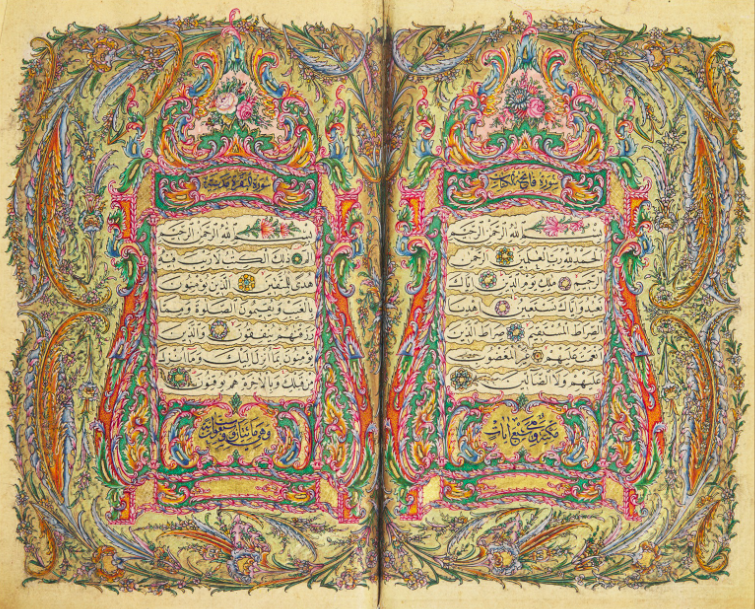 سورة فاتحة الكتاب
بسم الله الرحمن الرحيم
الحمد لله رب العلمين الرحمن
الرحيم ملك يوم الدين اياك
نعبد واياك نستعين اهدنا
الصراط المستقيم صراط الذين
انعمت عليهم غير المغضوب
عليهم ولا الضالين
مكية وهي سبع ايات
سورة البقرة مدنية
بسم الله الرحمن الرحيم
الم ذلك الكتب لا ريب فيه
هدى للمتقين الذين يؤمنون
بالغيب ويقيمون الصلوة ومما
رزقنهم ينفقون والذين
يؤمنون بما انزل اليك وما انزل
من قبلك وبالاخرة هم يوقنون
وهي مايتان وست